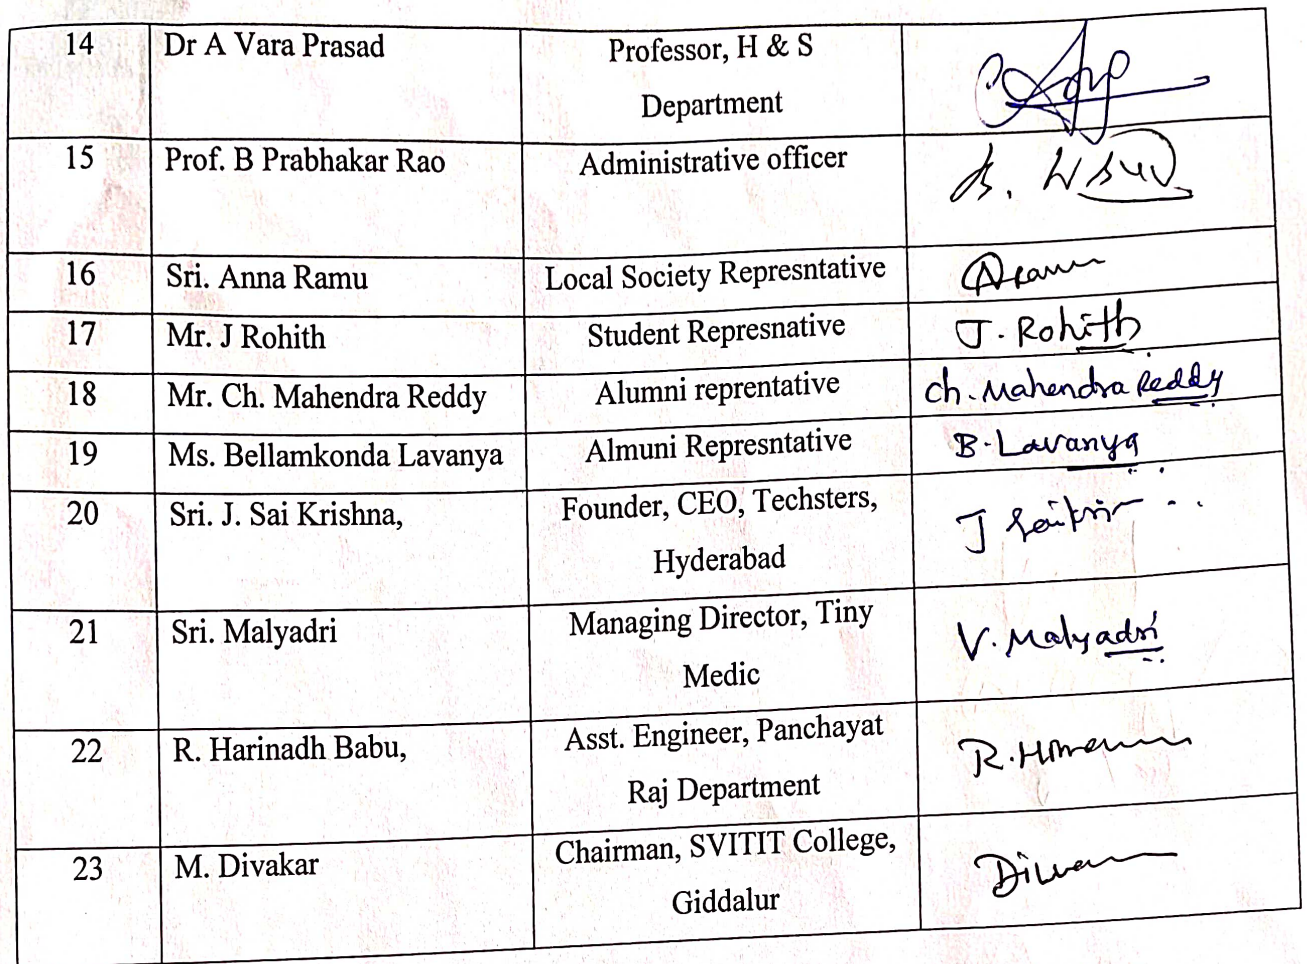 14 Dr A Vara Prasad Professor, H & S
Department
15 Prof. B Prabhakar Rao Administrative officer
16 Sri. Anna Ramu Local Society Represntative
17 Mr. J Rohith Student Represnative J. Rohith
18 Mr. Ch. Mahendra Reddy Alumni reprentative Ch. Mahendra Reddy
19 Ms. Bellamkonda Lavanya Almuni Represntative B. Lavanya
20 Sri. J. Sai Krishna, Founder, CEO, Techsters,
Hyderabad
21 Sri. Malyadri Managing Director, Tiny V. Malyadri
Medic
22 R. Harinadh Babu, Asst. Engineer, Panchayat
Raj Department
23 M. Divakar Chairman, SVITIT College,
Giddalur